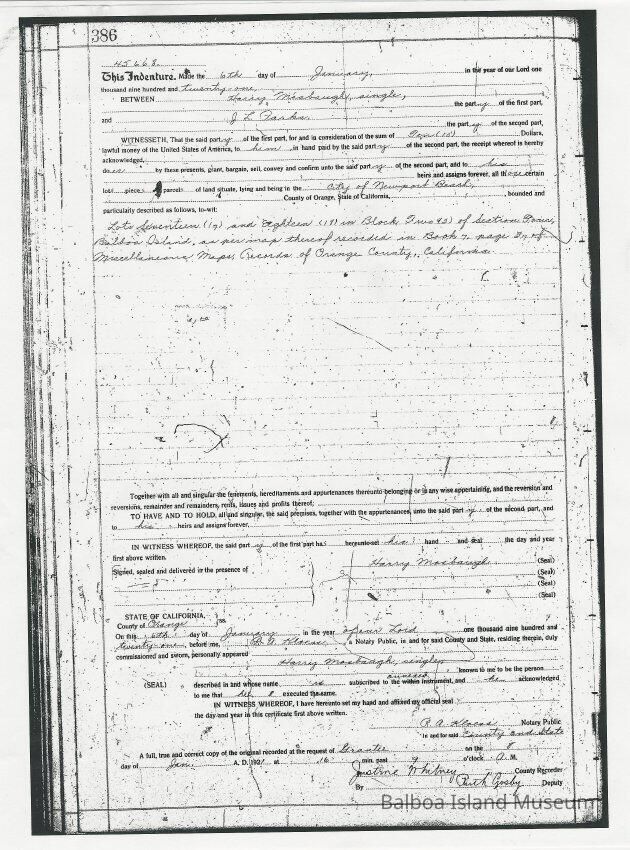 386
45668.
This Indenture. Made the 6th day of January, in the year of our Lord one
thousand nine hundred and twenty-one,
BETWEEN Harry Mosbaugh, single,
the party of the first part,
and J L Parks
the party of the second part,
WITNESSETH, That the said party of the first part, for and in consideration of the sum of Ten (10) Dollars,
lawful money of the United States of America, to him in hand paid by the said party of the second part, the receipt whereof is hereby
acknowledged,
does by these presents, grant, bargain, sell, convey and confirm unto the said party of the second part, and to his
heirs and assigns forever, all those certain
lots pieces parcels of land situate, lying and being in the City of Newport Beach,
County of Orange, State of California, bounded and
particularly described as follows, to-wit:
Lots Seventeen (17) and Eighteen (18) in Block Two of Section Four,
Balboa Island, as per map thereof recorded in Book 7, page of
Miscellaneous Maps, Records of Orange County, California.
Together with all and singular the tenements, hereditaments and appurtenances thereunto belonging or in any wise appertaining, and the reversion and
reversions, remainder and remainders, rents, issues and profits thereof;
TO HAVE AND TO HOLD, all and singular, the said premises, together with the appurtenances, unto the said party of the second part, and
to his heirs and assigns forever,
IN WITNESS WHEREOF, the said party of the first part has hereunto set his hand and seal the day and year
first above written.
Harry Mosbaugh (Seal)
Signed, sealed and delivered in the presence of (Seal)
(Seal)
(Seal)
STATE OF CALIFORNIA,
County of Orange ss.
On this 6th day of January in the year of our Lord one thousand nine hundred and
twenty-one, before me, a Notary Public, in and for said County and State, residing therein, duly
commissioned and sworn, personally appeared
Harry Mosbaugh, single,
known to me to be the person
annexed
(SEAL) described in and whose name is subscribed to the within instrument, and he acknowledged
to me that he executed the same.
IN WITNESS WHEREOF, I have hereunto set my hand and affixed my official seal
the day and year in this certificate first above written.
Notary Public
In and for said County and State
A full, true and correct copy of the original recorded at the request of Grantee on the 8
day of Jan. A. D. 1921 at min. past 9 o'clock A. M.
Justine Whitney County Recorder
By Ruth Deputy
Balboa Island Museum